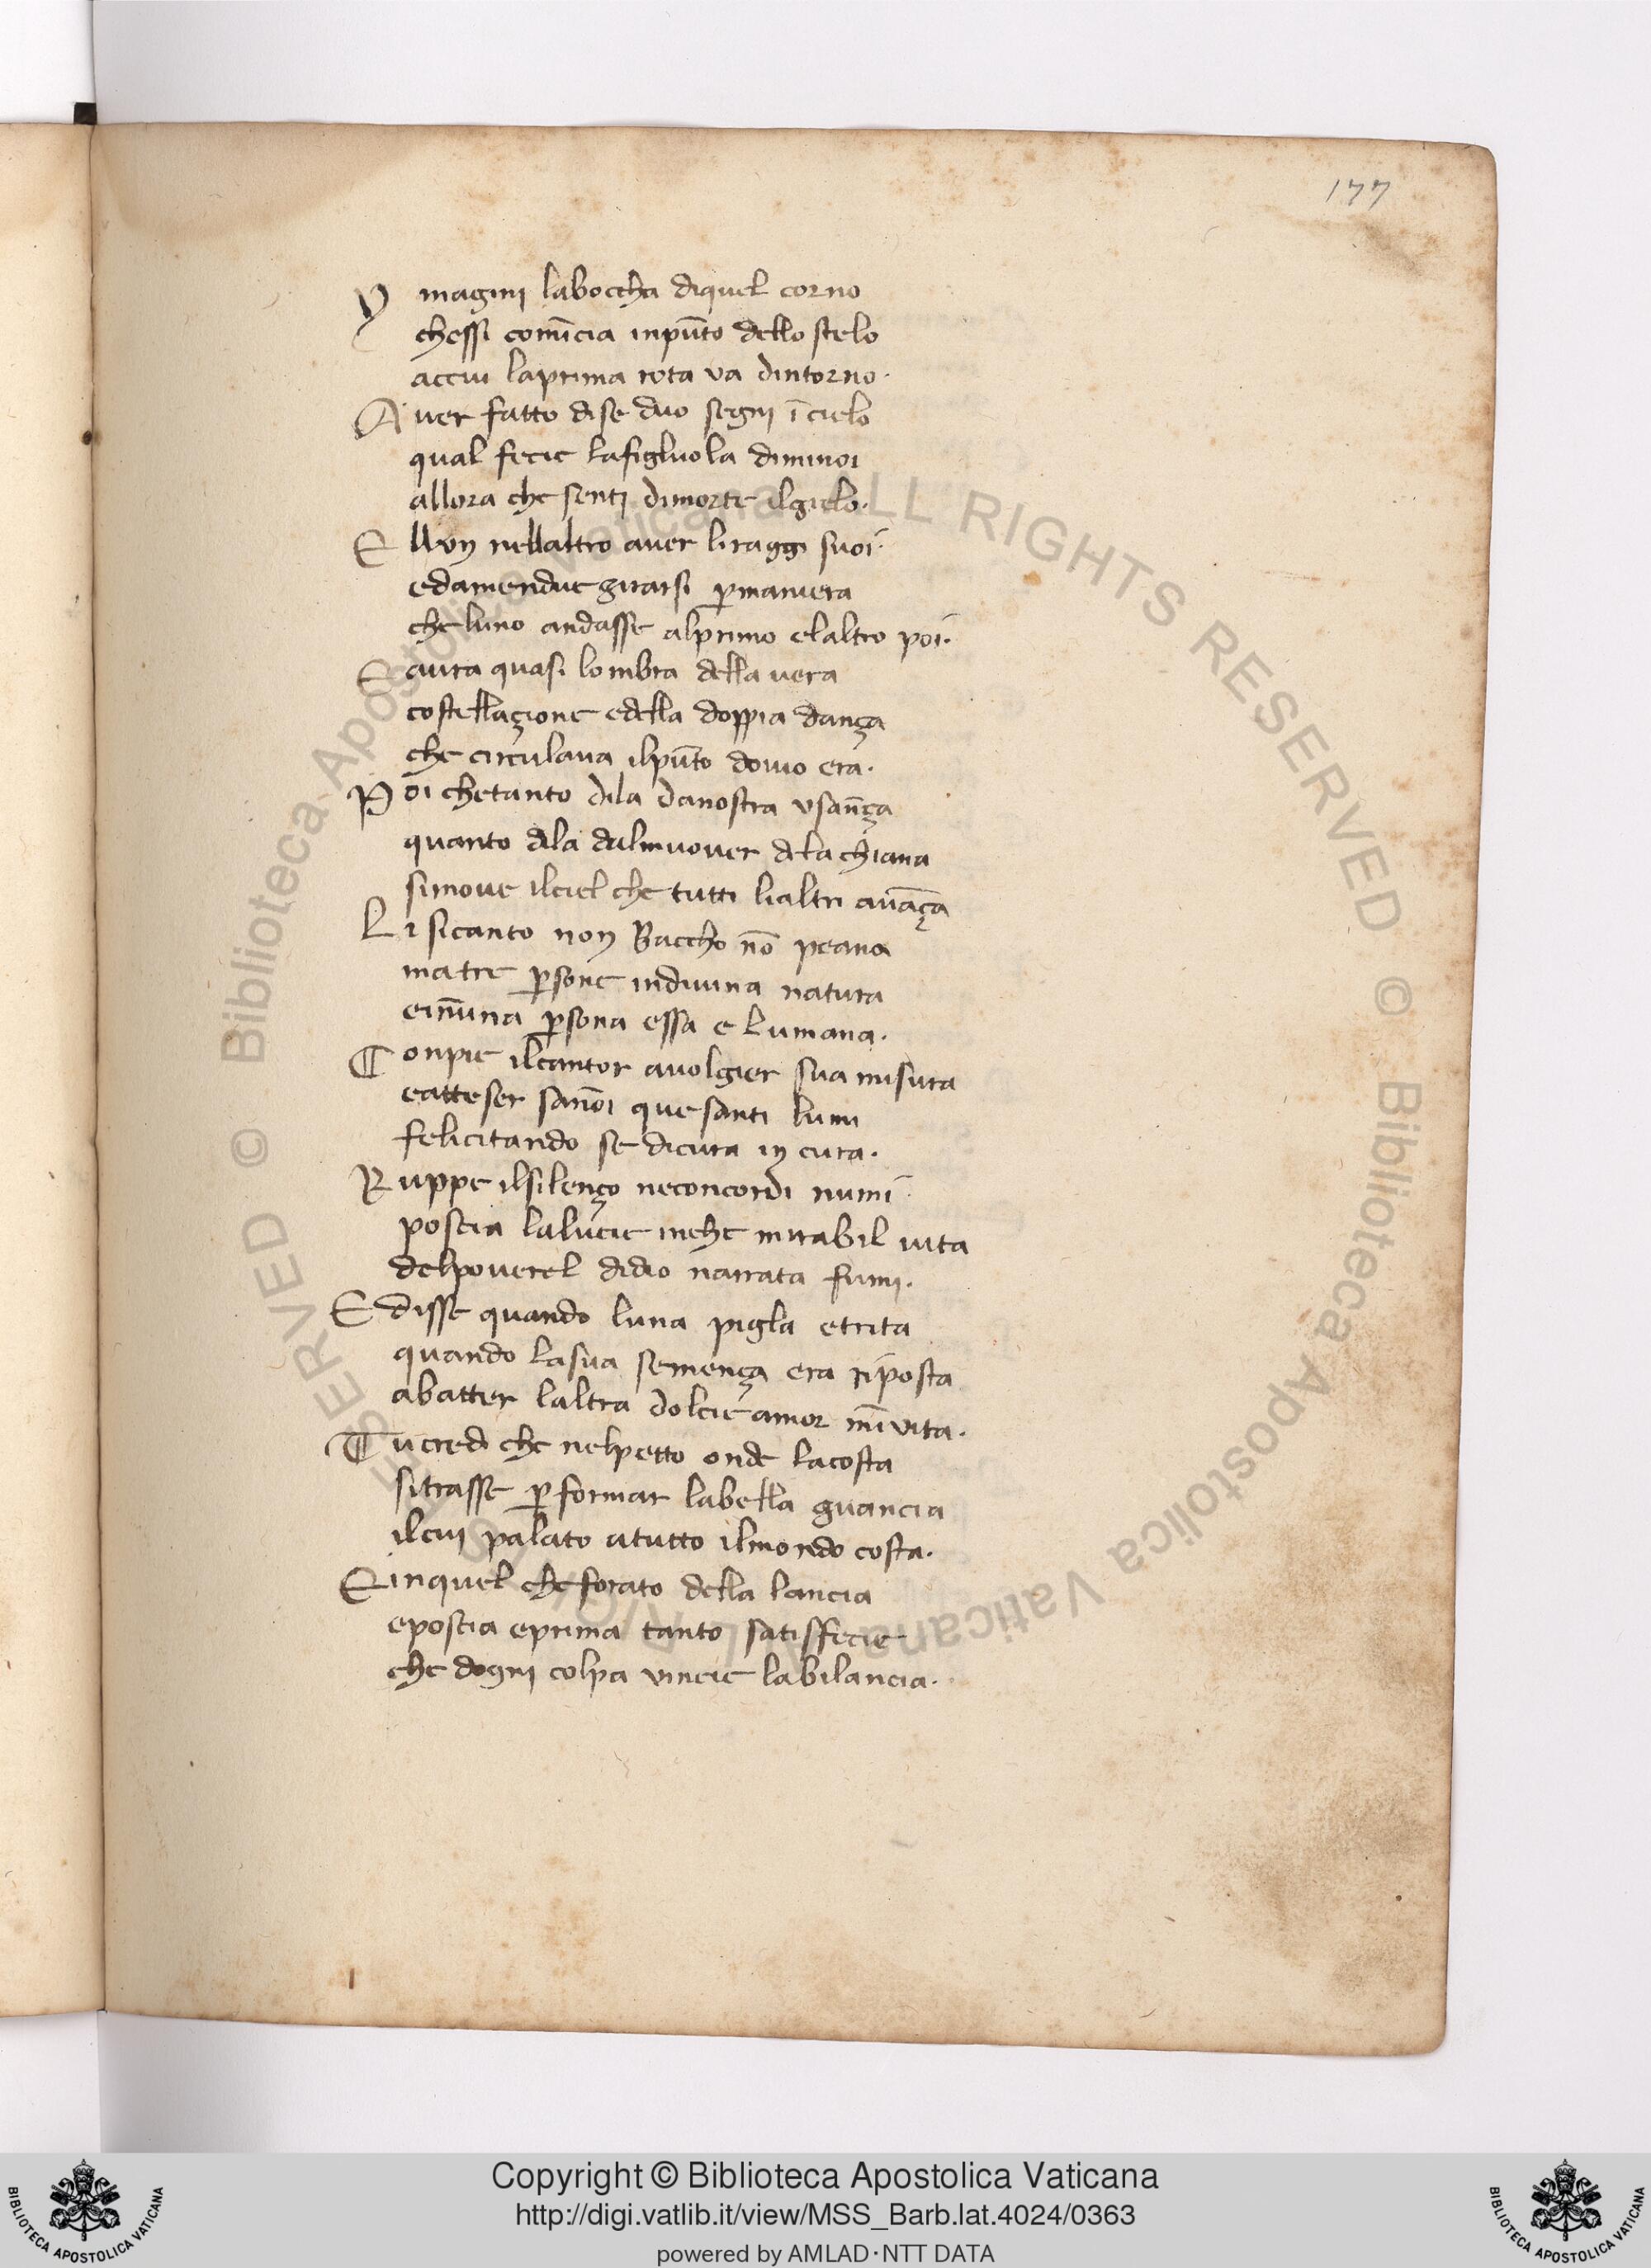 177
Y magini laboccha diquel corno
chessi comīcia inpūto dello stelo
accui laprima rota va dintorno.
A uer fatto dise duo segni ī cielo
qual fecie lafigluola diminoi
allora che senti dimorte ilgielo.
E llun nellaltro auer liraggi suoi.
edamendue girarsi p̱maniera
che luno andasse alprimo elaltro poi.
E aura quasi lombra della uera
costellaçione edella doppia dança
che circulaua ilpūto douio era.
P oi chetanto dila danostra vsan̄ça
quanto dila dalmuouer dela chiana
simoue ilciel che tutti lialtri auāça
L i sicanto non Baccho nō peana
ma tre p̱sone indiuina natura
ein̄una p̱sona essa e lumana.
C onpie ilcantor auolgier sua misura
eatteser sanōi que santi lumi
felicitando se dicura in cura.
R uppe ilsilenço neconcordi numi
poscia lalucie inche mirabil uita
delpouerel didio narrata fumi.
E disse quando luna pigla etrita
quando lasua semença era riposta
abatter laltra dolcie amor m̄i vita.
T u credi che nelpetto onde lacosta
sitrasse p̱ formar labella guancia
ilcui palato atutto ilmondo costa.
E inquel che forato della lancia
eposcia eprima tanto satisfecie
che dogni colpa vincie labilancia.
© Biblioteca Apostolica Vaticana ALL RIGHTS RESERVED © Biblioteca Apostolica Vaticana ALL RIGHTS RESERVED
Copyright © Biblioteca Apostolica Vaticana
http://digi.vatlib.it/view/MSS_Barb.lat.4024/0363
powered by AMLAD·NTT DATA
BIBLIOTECA APOSTOLICA VATICANA
BIBLIOTECA APOSTOLICA VATICANA